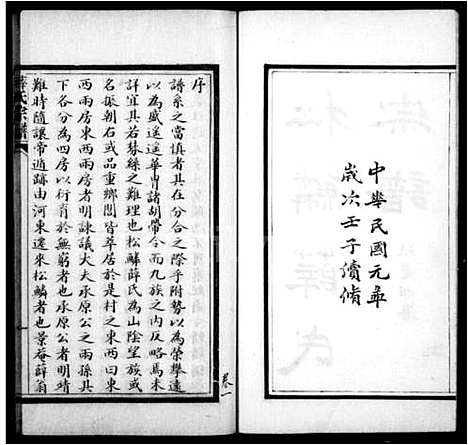 中華民國元年
歲次壬子續修
序
譜系之當慎者其在分合之際乎附勢以為榮舉遠
以為盛遥遥華胄諸胡帶令而九族之内反略焉未
詳宜其若棼絲之難理也松鱗薛氏為山陰望族或
名振朝右或品重鄉閭皆萃居於是村之東西曰東
西兩房東西兩房者明諫議大夫承原公之兩孫其
下各分為四房以衍育於無窮者也承原公者明靖
難時隨讓帝遁跡由河東遷來松鱗者也景庵薛翁
薛氏宗譜
卷一